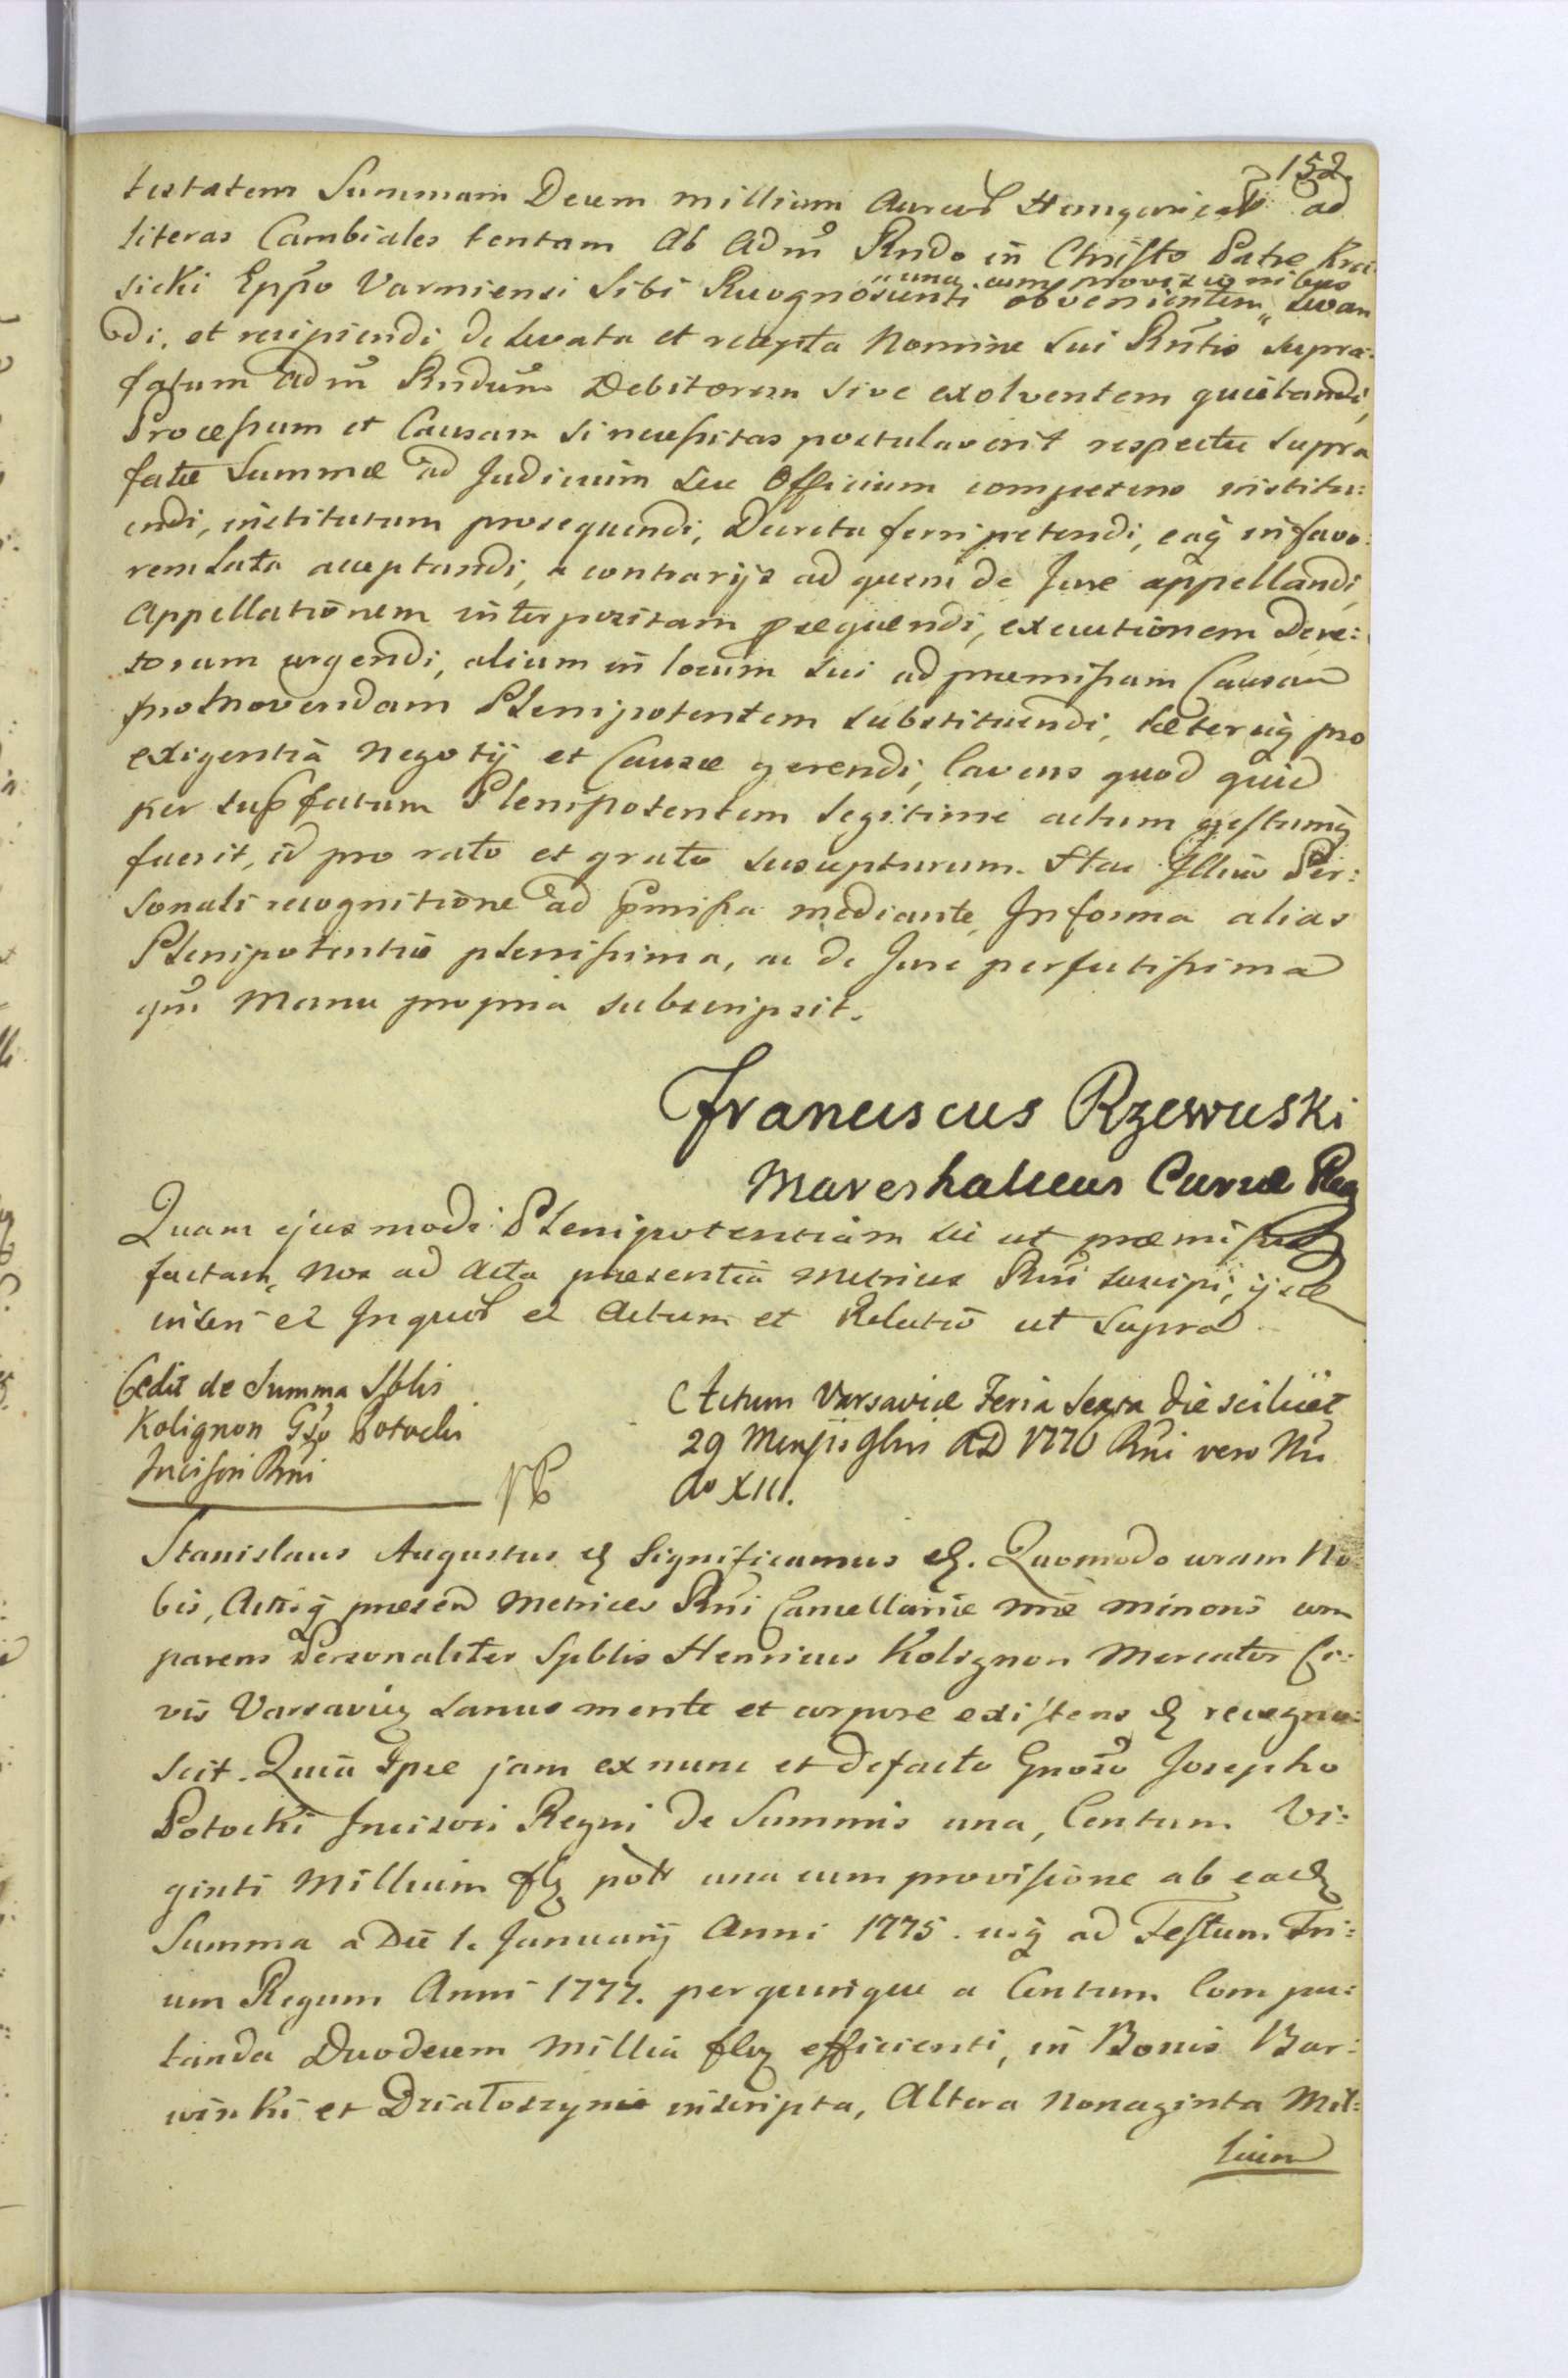 152.
testatem Summam Decem millium Aureos Hungarical ad
literas Cambiales tentam ab Adm̃ Rndo in Christo Patre Kra=
sicki Eppõ Varmiensi Sibi Recognoscenti „una cum provizionibus obvenientem„ Levan
di, et recipiendi de Levata et recepta Nomine Sui Rñtis supra=
fatum Adm̃ Rndum̃ Debitorem sive exolventem quietandi,
Processum et Causam si necessitas postulaverit respectu supra
fatæ Summæ ad Judicium seu Officium competens institu=
endi, institutum prosequendi, Decreta ferri petendi, eaq̃ in favo=
rem Lata acceptandi, a contrarijs ad quem de Jure appellandi,
Appellationem interpositam prosequendi, executionem Decre=
torum urgendi, alium in locum sui ad præmissam Causam
promovendam Plenipotentem substituendi, cæteraq̃ pro
exigentia Negotij et Causæ gerendi, Cavens quod quid
per supfatum Plenipotentem Legitime actum gestumq̃
fuerit, id pro rato et grato suscepturum. Hac Illius Per=
sonali recognitione ad pmissa mediante Informa alias
Plenipotentia plenissima, ac de Jure perfectissima
qui Manu propria subscripsit.
Franciscus Rzewuski
Mareshalcus Curiæ Reg
Quam ejusmodi Plenipotentiam sic ut præmissum
factam, Nos ad Acta præsentia Metrices Rñi suscipi, ijsde
inseri et Inquos et Actum et Relatio ut Supra
Cedit de Summa Sblis
Kolignon Gso Potocki
Incisori Rñi
Actum Varsaviæ Feria Sexta die scilicet
29 Mensis 9bris AD 1776 Rñi vero Nri
Ao XIII.
Stanislaus Augustus & Significamus &. Quomodo coram No=
bis, Actisq̃ præsen Metrices Rñi Cancellariæ nræ minoris com
parens Personaliter Spblis Henricus Kolignon Mercator Ci=
vis Varsavieñ sanus mente et corpore existens & recogno=
scit. Quia Ipse jam ex nunc et defacto Gnoso Josepho
Potocki Incisori Regni de Summis una, Centum Vi=
ginti Millium flr̃ pol una cum provisione ab eade
Summa a Die 1. Januarij Anni 1775. usq̃ ad Festum Tri=
um Regum Anni 1777. per quinque a Centum Compu=
tanda Duodecem Millia flor efficienti, in Bonis Bar=
winki et Działoszynie inscripta, Altera Nonaginta Mil=
lium